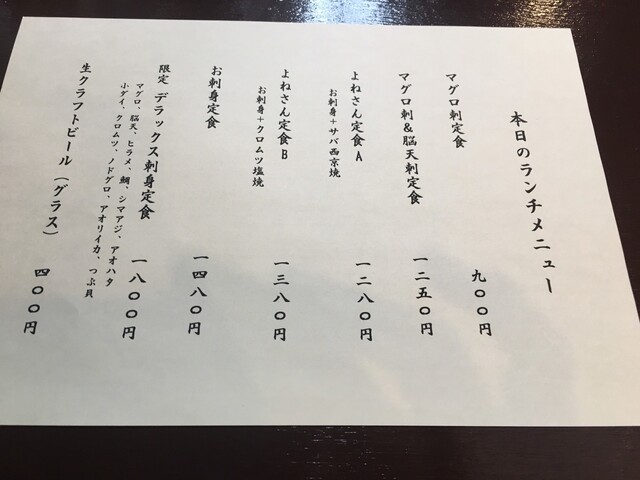 本日のランチメニュー
マグロ刺定食 九〇〇円
マグロ刺&脳天刺定食 一二五〇円
よねさん定食A 一二八〇円
お刺身+サバ西京焼
よねさん定食B 一三八〇円
お刺身+クロムツ塩焼
お刺身定食 一四八〇円
限定 デラックス刺身定食 一八〇〇円
マグロ、脳天、ヒラメ、鯛、シマアジ、アオハタ
小ダイ、クロムツ、ノドグロ、アオリイカ、つぶ貝
生クラフトビール(グラス) 四〇〇円